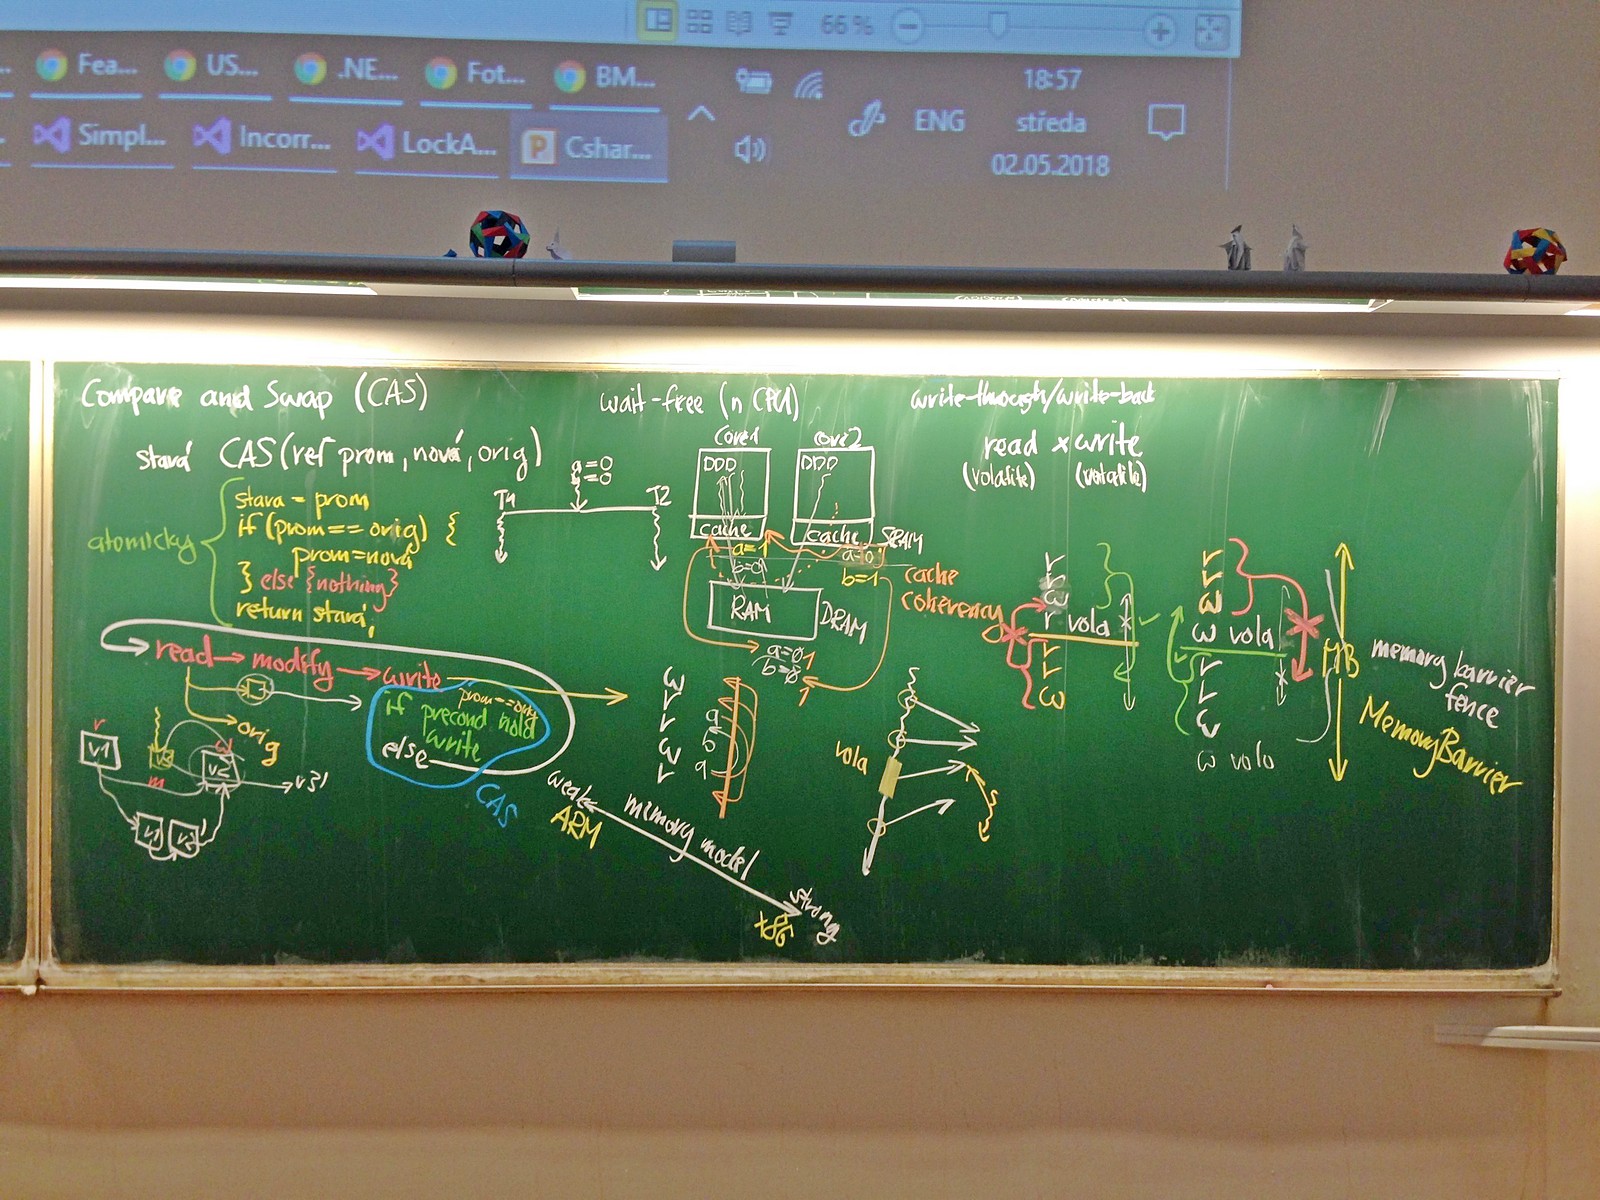 66 %
Fea...
US...
.NE...
Fot...
BM...
18:57
Simpl...
Incorr...
LockA...
Cshar...
ENG
středa
02.05.2018
Compare and Swap (CAS)
wait-free (n CPU)
write-through/write-back
stará CAS(ref prom, nová, orig)
atomicky
stara = prom
if (prom == orig) {
prom=nová
} else {nothing}
return stará;
read → modify → write
orig
prom==orig
if precond hold
write
else
CAS
r
v1
m
w
v3'
v1
v2'
a=0
T1
T2
Core1
Core2
DDD
DDD
cache
cache
SRAM
a=1
b=1
RAM
DRAM
cache
coherency
w
r
r
w
r
a
b
a
weak
ARM
memory model
strong
x86
vola
read × write
(volatile)
(volatile)
r
r
w
r vola
r
r
w
r
r
w
w vola
r
r
w
w vola
MB
memory barrier
fence
MemoryBarrier